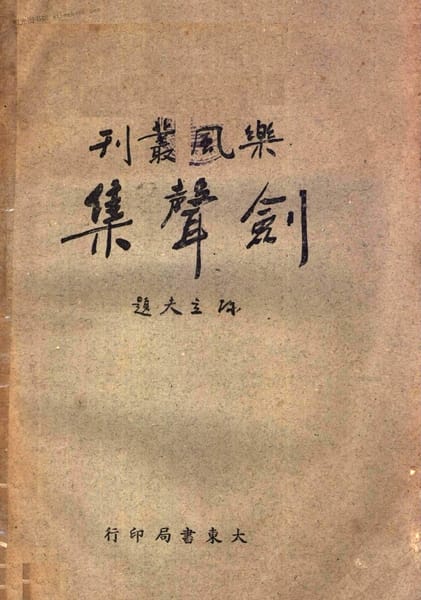 樂風叢刊
劍聲集
陳立夫題
大東書局印行